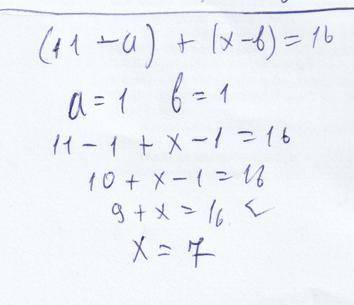 (11 - a) + (x - b) = 16
a = 1 b = 1
11 - 1 + x - 1 = 16
10 + x - 1 = 16
9 + x = 16
x = 7